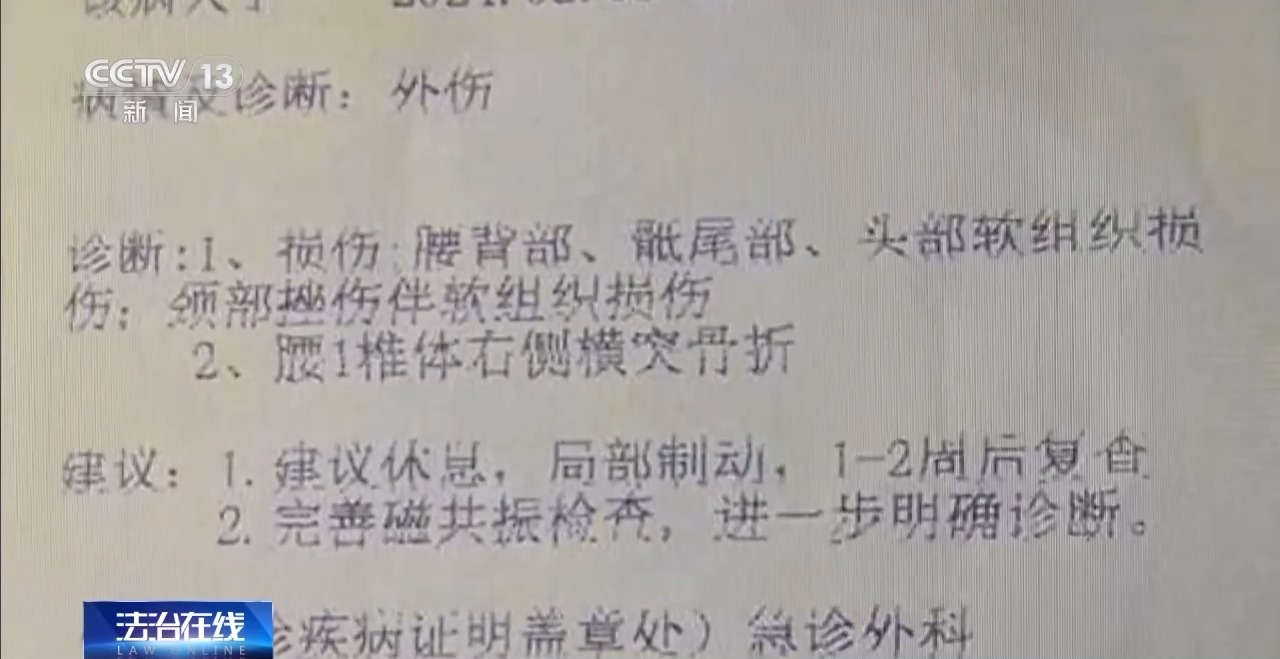 CCTV 13
新闻
诊断: 外伤
诊断:1、损伤:腰背部、骶尾部、头部软组织损
伤; 颈部挫伤伴软组织损伤
2、腰1椎体右侧横突骨折
建议: 1. 建议休息, 局部制动, 1-2周后复查
2. 完善磁共振检查, 进一步明确诊断。
诊疾病证明盖章处) 急诊外科
法治在线
LAW ONLINE